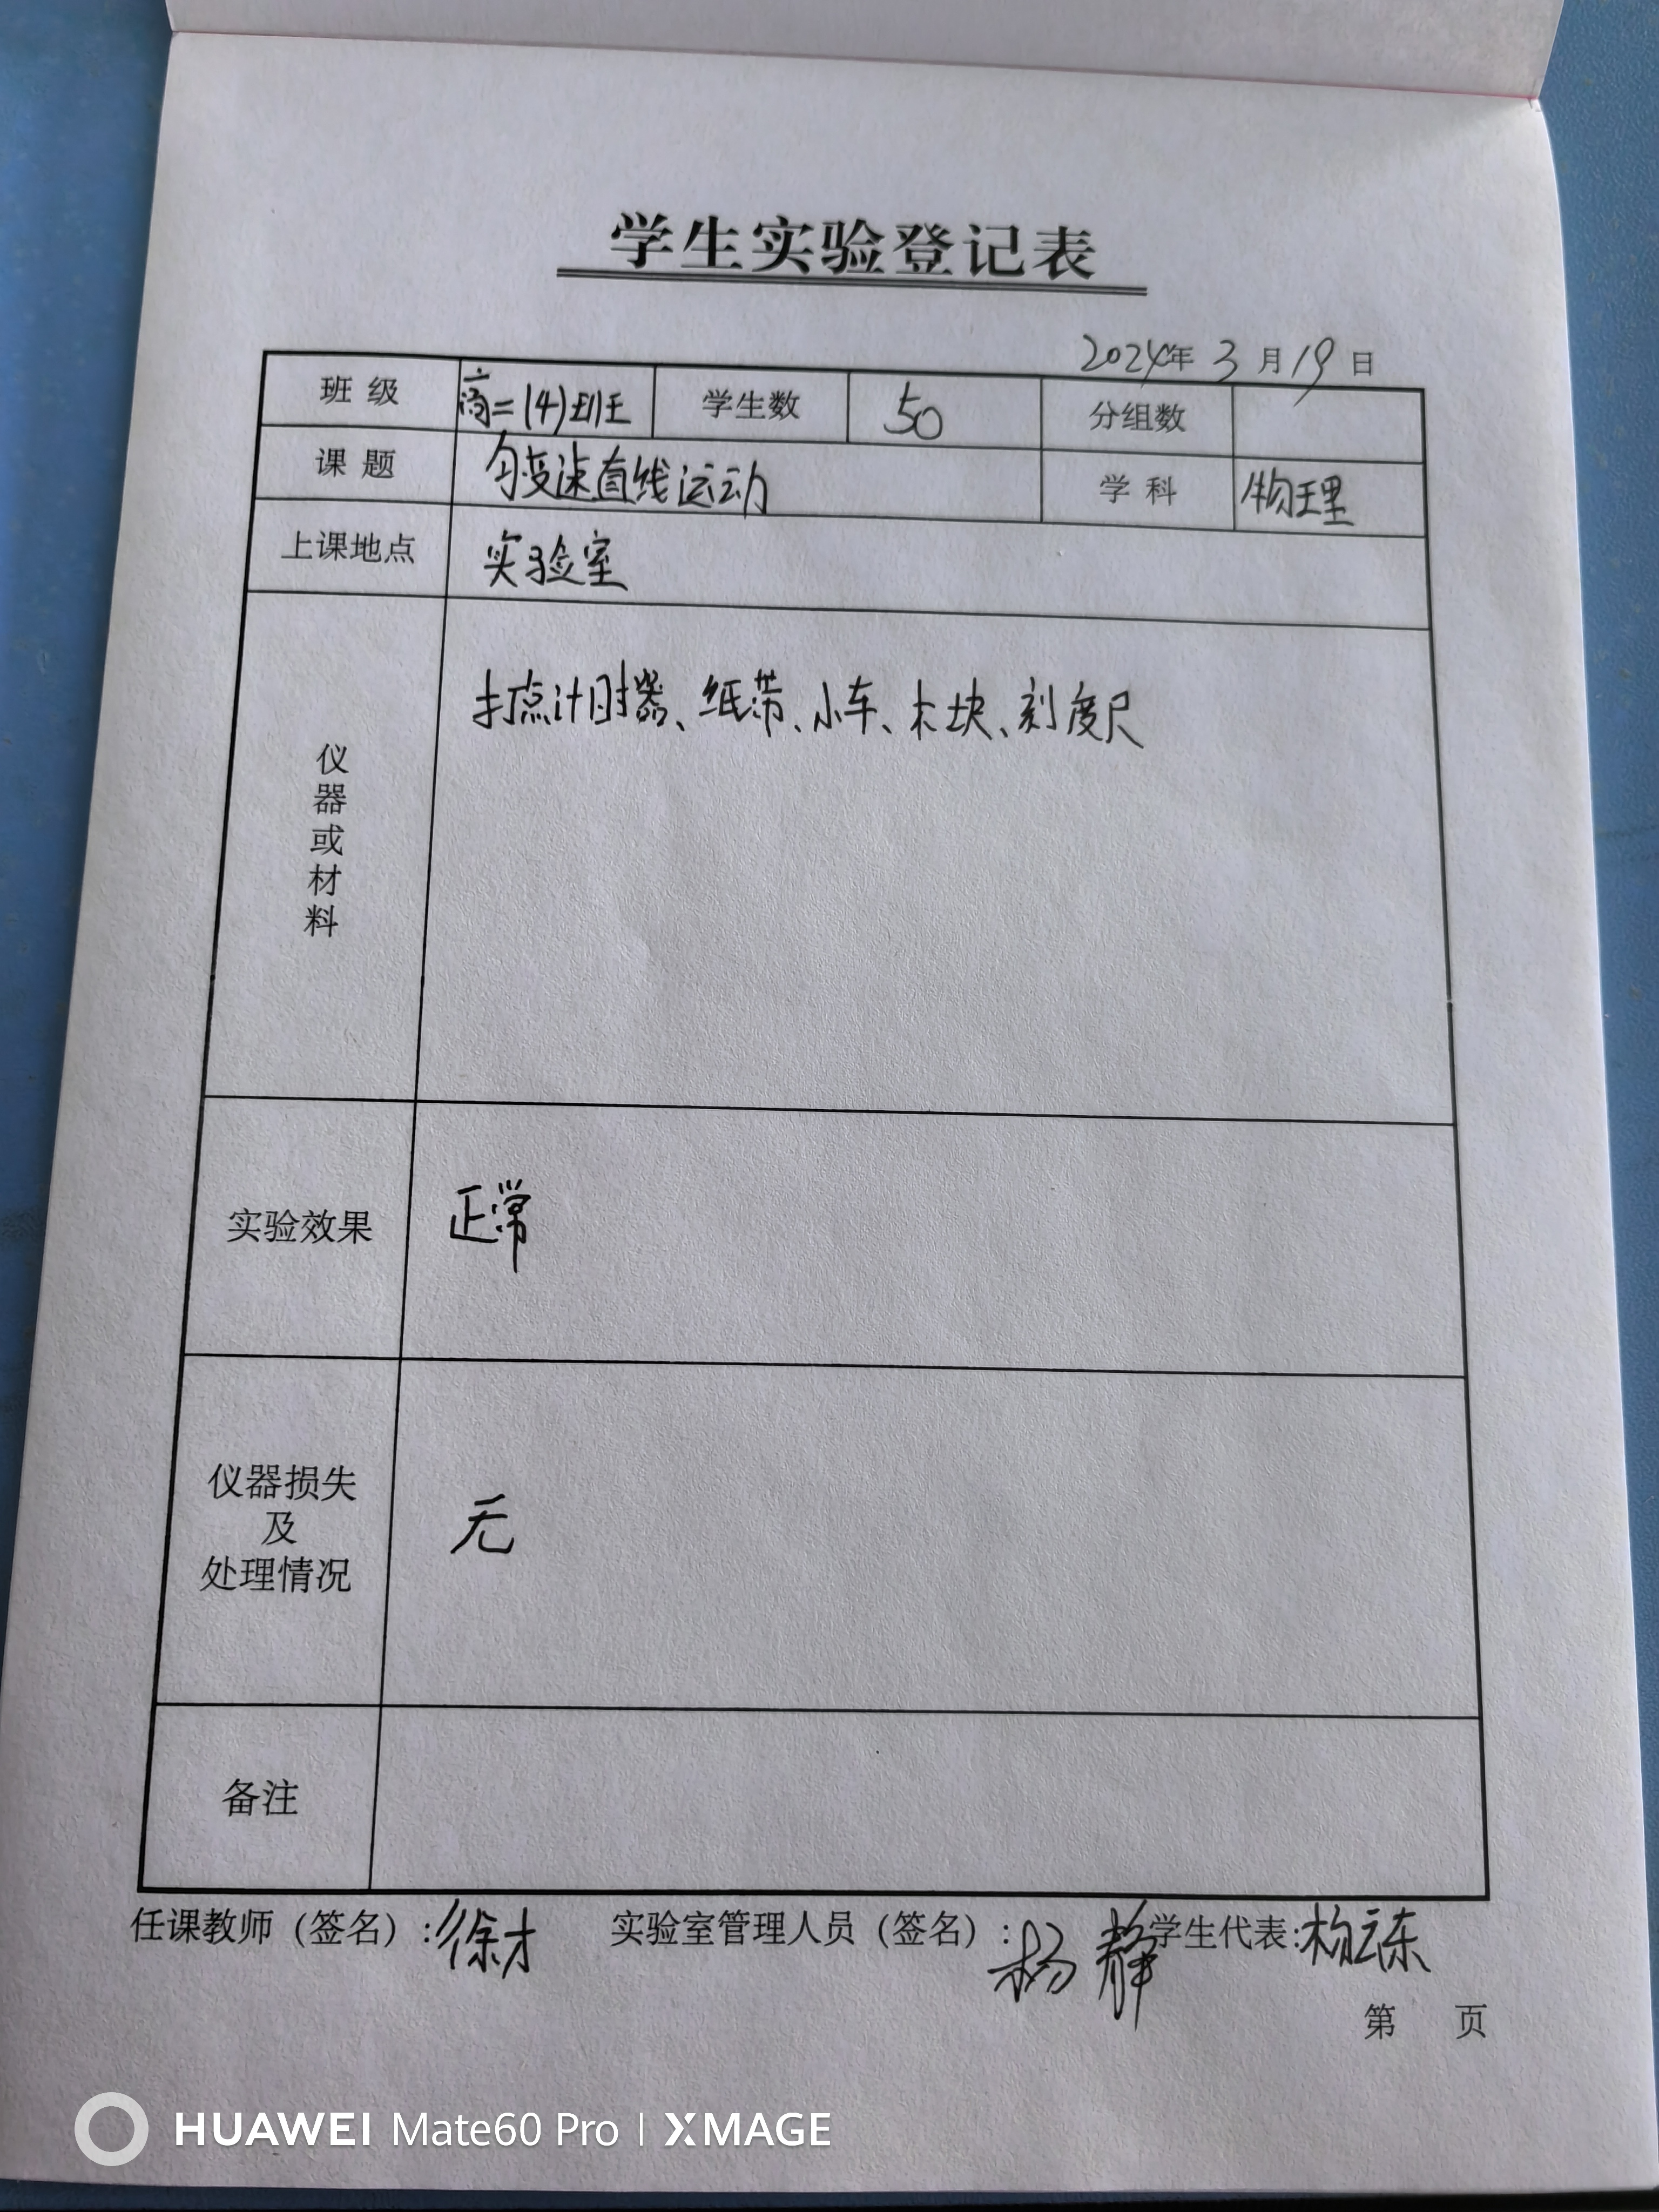 学生实验登记表
2024年 3 月 19 日
班 级 高二(4)班 学生数 50 分组数
课 题 匀变速直线运动 学 科 物理
上课地点 实验室
仪器或材料 打点计时器、纸带、小车、木块、刻度尺
实验效果 正常
仪器损失
及
处理情况 无
备注
任课教师（签名）:徐才 实验室管理人员（签名）:杨静 学生代表:杨云东
第 页
HUAWEI Mate60 Pro | XMAGE